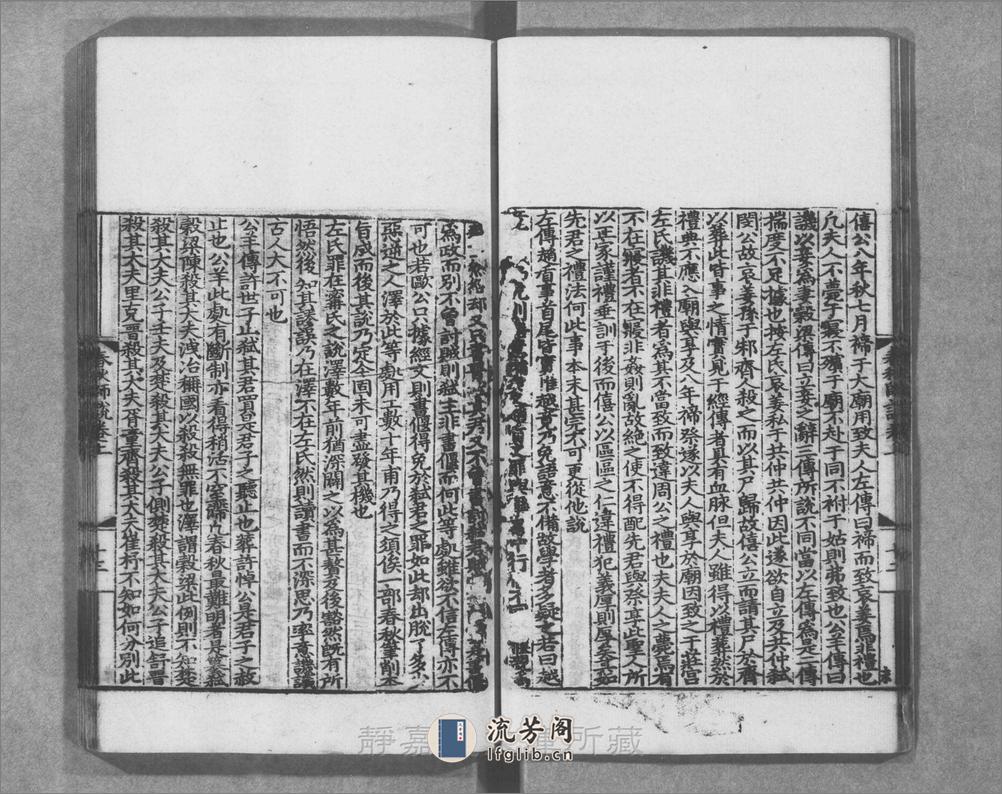 僖公八年秋七月禘于大廟用致夫人左傳曰禘而致哀姜焉非禮也
凡夫人不薨于寢不殯于廟不赴于同不祔于姑則弗致也公羊傳曰
譏以妾為妻穀梁傳曰立妾之辭三傳所說不同當以左傳為是二傳
揣度不足據也按左氏哀姜私于共仲共仲因此遂欲自立及共仲弒
閔公故哀姜孫于邾齊人殺之而以其尸歸故僖公立而請其尸於齊
以葬此皆事之情實見于經傳者具有血脉但夫人雖得以禮葬然於
禮典不應入廟與享及八年禘祭遂以夫人與享於廟因致之于莊宮
左氏譏其非禮者為其不當致而致違周公之禮也夫夫人之薨焉有
不在寢者不在寢非姦則亂故絕之使不得配先君與祭享此聖人所
以正家謹禮垂訓于後而僖公以區區之仁違禮犯義厚則厚矣其如
先君之禮法何此事本末甚完不可更從他說
左傳趙盾事首尾皆實惟越竟乃免語意不備故學者多疑之若曰越
為政而別不曾討賊則弒主非書偃而何此等處雖欲不信左傳亦不
可也若歐公只據經文則書偃得免於弒君之罪如此却出脫了多少
惡逆之人澤於此等處用工數十年甫乃得之須俟一部春秋筆削本
旨成而後其說乃定今固未可盡發其機也
左氏罪在審氏之說澤數年前猶深闢之以為甚謬及後豁然旣有所
悟然後知其謬誤乃在澤不在左氏然則讀書而不深思乃率意譏議
古人大不可也
公羊傳許世子止弒其君買是君子之聽止也葬許悼公是君子之赦
止也公羊此處有斷制亦看得稍活不窒礙春秋最難明者是葬弒
穀梁陳殺其大夫洩冶稱國以殺殺無罪也澤謂穀梁此例則不知楚
殺其大夫公子壬夫及楚殺其大夫公子側楚殺其大夫公子追舒晉
殺其大夫里克晉殺其大夫胥童齊殺其大夫崔杼不知如何分別此
春秋師說卷上
靜嘉 所藏
流芳阁
lfglib.cn